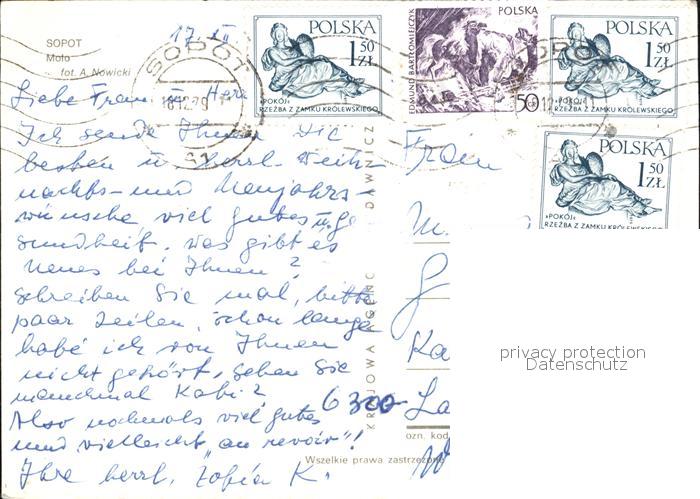 SOPOT
Molo
fot. A. Nowicki
17. XII
SOPOT
18.12.79
POLSKA
1 50 ZŁ
»POKÓJ«
RZEŹBA Z ZAMKU KRÓLEWSKIEGO
POLSKA
EDMUND BARTŁOMIEJCZYK
50
POLSKA
1 50 ZŁ
»POKÓJ«
RZEŹBA Z ZAMKU KRÓLEWSKIEGO
POLSKA
1 50 ZŁ
»POKÓJ«
RZEŹBA Z ZAMKU KRÓLEWSKIEGO
Liebe Frau u Herr
Ich sende Ihnen die
besten u herzl. Weih-
nachts- und Neujahrs-
wünsche viel gutes u. ge
sundheit. Was gibt es
neues bei Ihnen?
schreiben Sie mal, bitte
paar Zeilen, schon lange
habe ich von Ihnen
nicht gehört, sehen Sie
manchmal Kabi?
Also nochmals viel gutes
und vielleicht "au revoir"!
Ihre herzl. Zofia K.
Frau
M
Ka
6300 La
W
ozn. kod
Wszelkie prawa zastrzeżone
privacy protection
Datenschutz